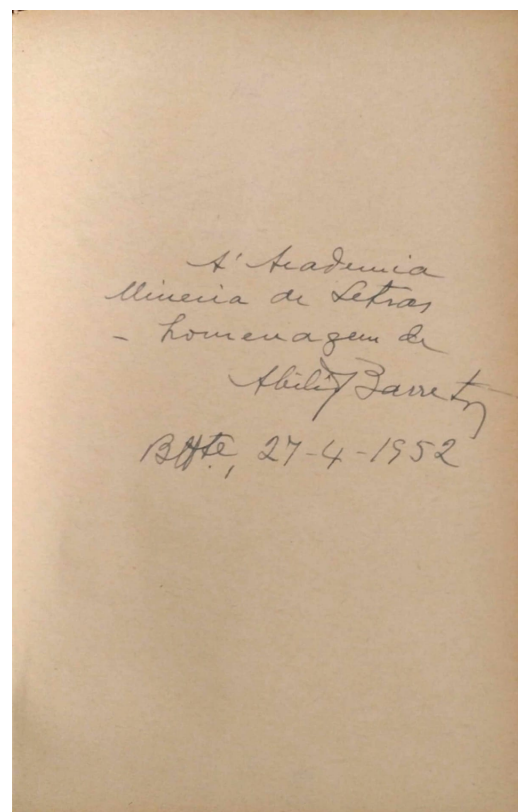 A' Academia
Mineira de Letras
- homenagem de
Abilio Barreto
BHte, 27-4-1952